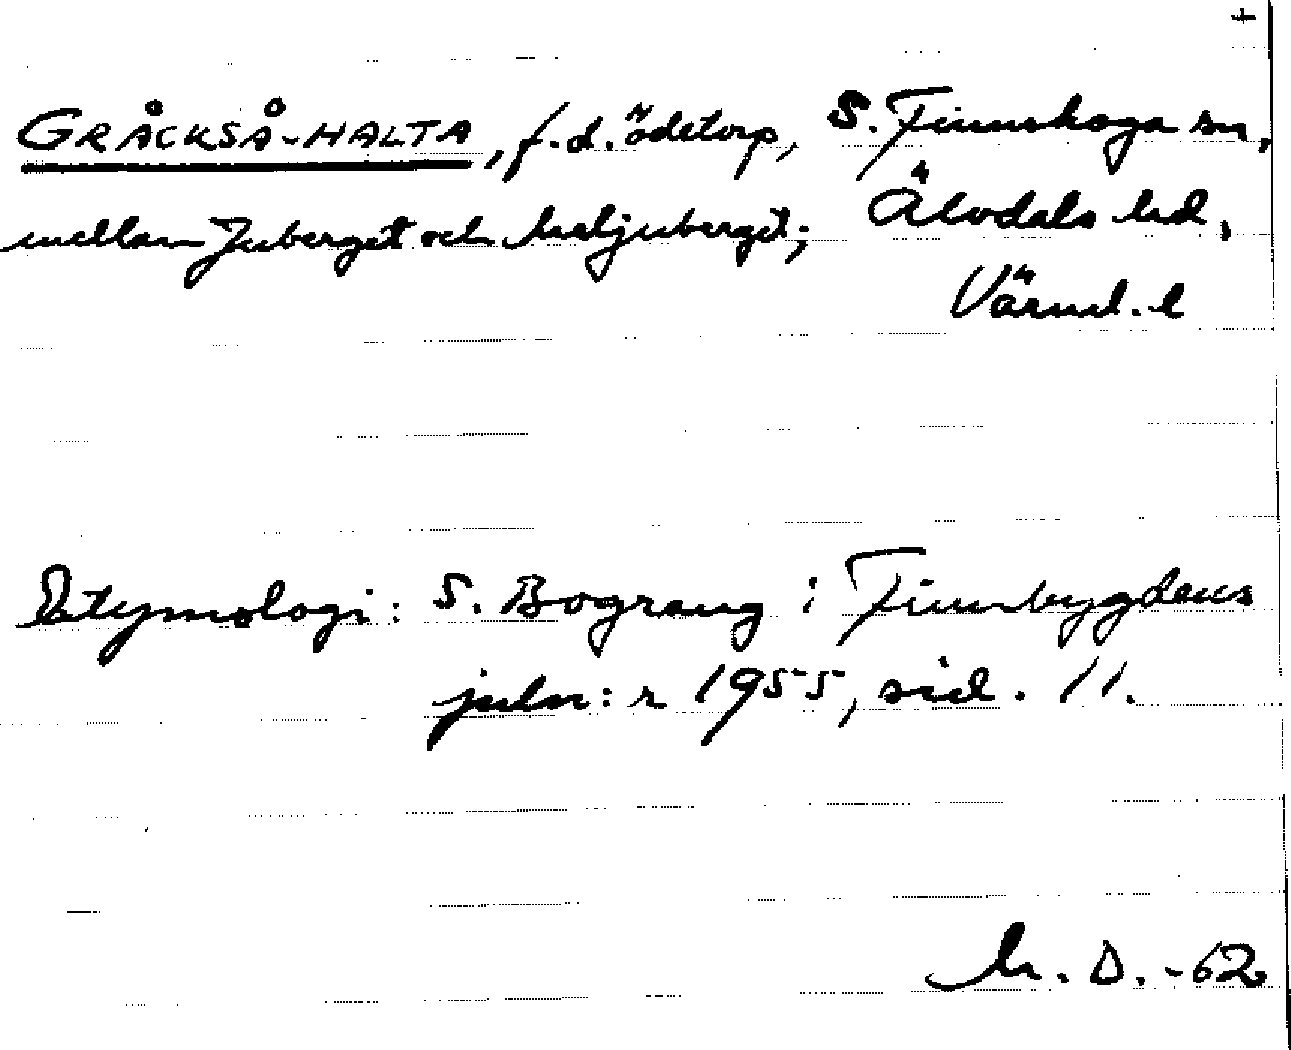 †
GRÅCKSÅ-HALTA, f.d. ödetorp, S. Finnskoga sn,
mellan Juberget och Meljuberget; Älvdals hd,
Värml. l
Etymologi: S. Bograng i Finnbygdens
juln:r 1955, sid. 11.
D. -62